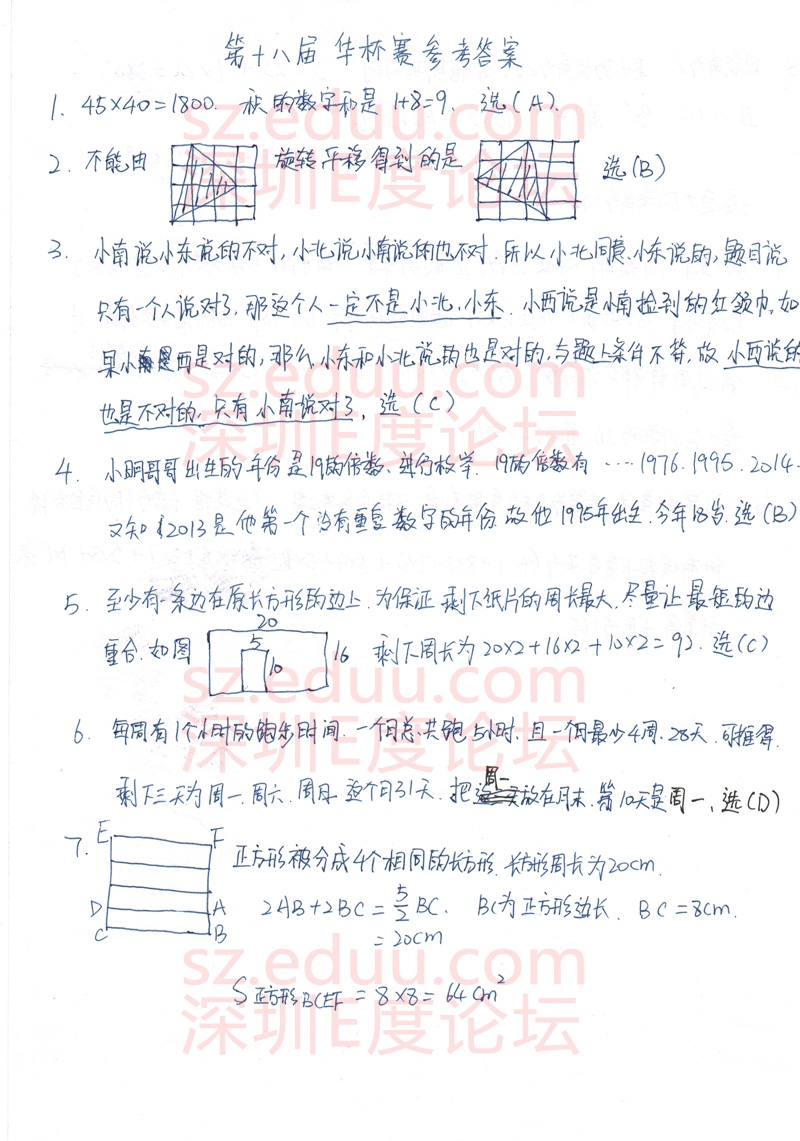 第十八届 华杯赛参考答案
1. 45×40=1800. 积的数字和是 1+8=9. 选(A).
2. 不能由 旋转平移得到的是 选(B)
3. 小南说小东说的不对,小北说小南说的也不对.所以小北同意小东说的,题目说
只有一个人说对了,那这个人一定不是小北,小东.小西说是小南捡到的红领巾,如
果小西是对的,那么小东和小北说的也是对的,与题上条件不符,故 小西说的
也是不对的,只有小南说对了,选(C)
4. 小明哥哥出生的年份是19的倍数、进行枚举.19的倍数有 ····1976.1995.2014.
又知2013是他第一个没有重复数字的年份.故他1995年出生.今年18岁.选(B)
5. 至少有一条边在原长方形的边上.为保证 剩下纸片的周长最大.尽量让最短的边
20
重合.如图 5 10 16 剩下周长为20×2+16×2+10×2=92.选(C)
6. 每周有1个小时的跑步时间.一个月总共跑5小时.且一个月最少4周、28天.可推得.
剩下三天为周一.周六.周日.这个月31天.把周一放在月末.第10天是周一.选(D)
7. E F 正方形被分成4个相同的长方形.长方形周长为20cm.
D A 2AB+2BC=5/2BC. BC为正方形边长. BC=8cm.
C B =20cm
S正方形BCEF=8×8=64cm²
sz.eduu.com
深圳E度论坛
sz.eduu.com
深圳E度论坛
sz.eduu.com
深圳E度论坛
sz.eduu.com
深圳E度论坛